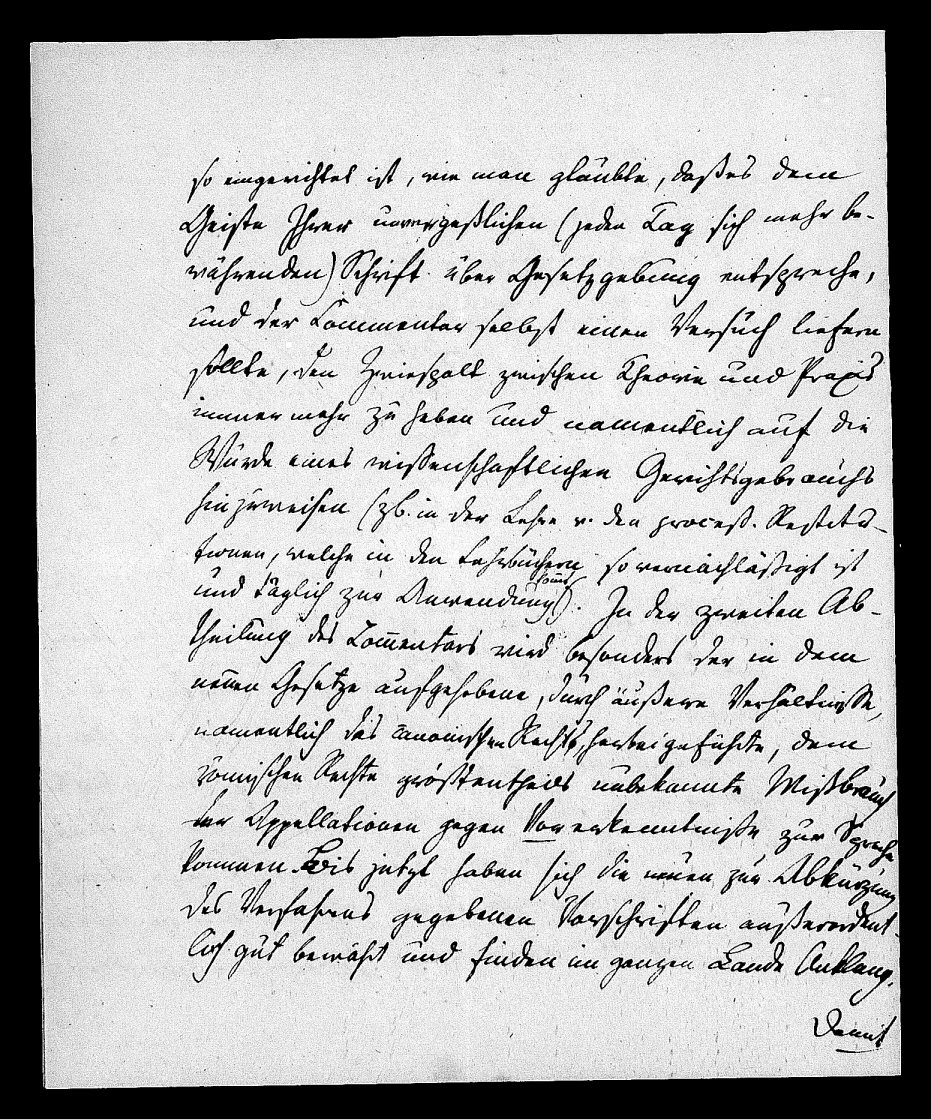 so eingerichtet ist, wie man glaubte, daß es dem
Geiste Ihrer unvergeßlichen (jeden Tag sich mehr be-
währenden) Schrift über Gesetzgebung entspreche,
und der Commentar selbst einen Versuch liefern
sollte, den Zwiespalt zwischen Theorie und Praxis
immer mehr zu heben und namentlich auf die
Würde eines wissenschaftlichen Gerichtsgebrauchs
hinzuweisen (zb. in der Lehre v. den proceß. Restitu-
tionen, welche in den Lehrbüchern so vernachläßigt ist
und täglich zur Anwendung kommt). In der zweiten Ab-
theilung des Com̅entars wird besonders der in dem
neuen Gesetze aufgehobene, durch äußere Verhältnisse,
namentlich des canonischen Rechts, herbeigeführte, dem
römischen Rechte größtentheils unbekannte Mißbrauch
der Appellationen gegen Vorerkenntniße zur Sprache
kommen. Bis jetzt haben sich die neuen zur Abkürzung
des Verfahrens gegebenen Vorschriften außerordent-
lich gut bewährt und finden im ganzen Lande Anklang.
Damit